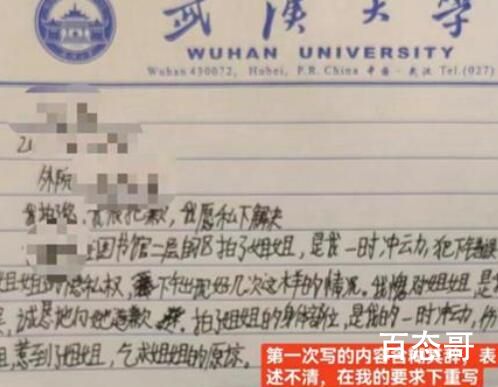 武漢大学
WUHAN UNIVERSITY
Wuhan 430072, Hubei, P.R. China 中国·武汉 Tel.(027)
外院
道歉，我愿私下解决
图书馆二层南区拍了姐姐，是我一时冲云力，犯下错误
姐姐的隐私权，下午出现好几次这样的情况。我愧对姐姐，是
诚恳地向她道歉，拍了姐姐的身体部位，是我的一时冲动，伤
惹到了姐姐，乞求姐姐的原谅。
百态哥
第一次写的内容含糊其辞，表
述不清，在我的要求下重写